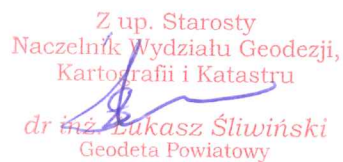 Z up. Starosty
Naczelnik Wydziału Geodezji,
Kartografii i Katastru
dr inż. Łukasz Śliwiński
Geodeta Powiatowy